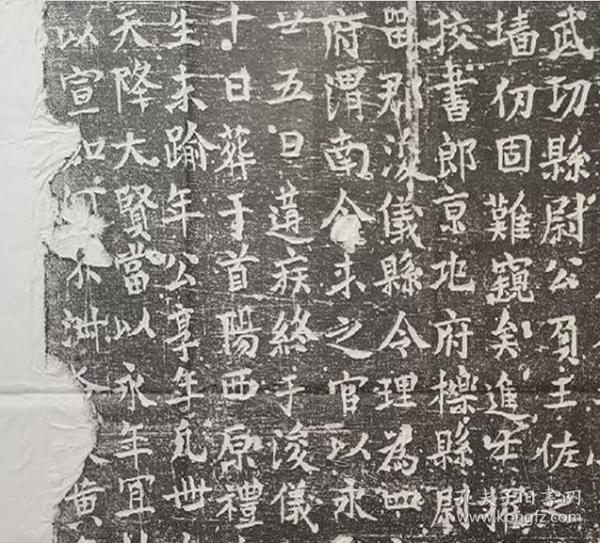 武功縣尉公負王佐之
墻仞固難窺矣進士擢
校書郎京兆府櫟縣尉
留郡浚儀縣令理為四
府渭南令未之官以永
廿五日遘疾終于浚儀
十日葬于首陽西原禮
生未踰年公享年凡卅
天降大賢當以永年宜
以宣
黄
孔夫子旧书网
www.kongfz.com